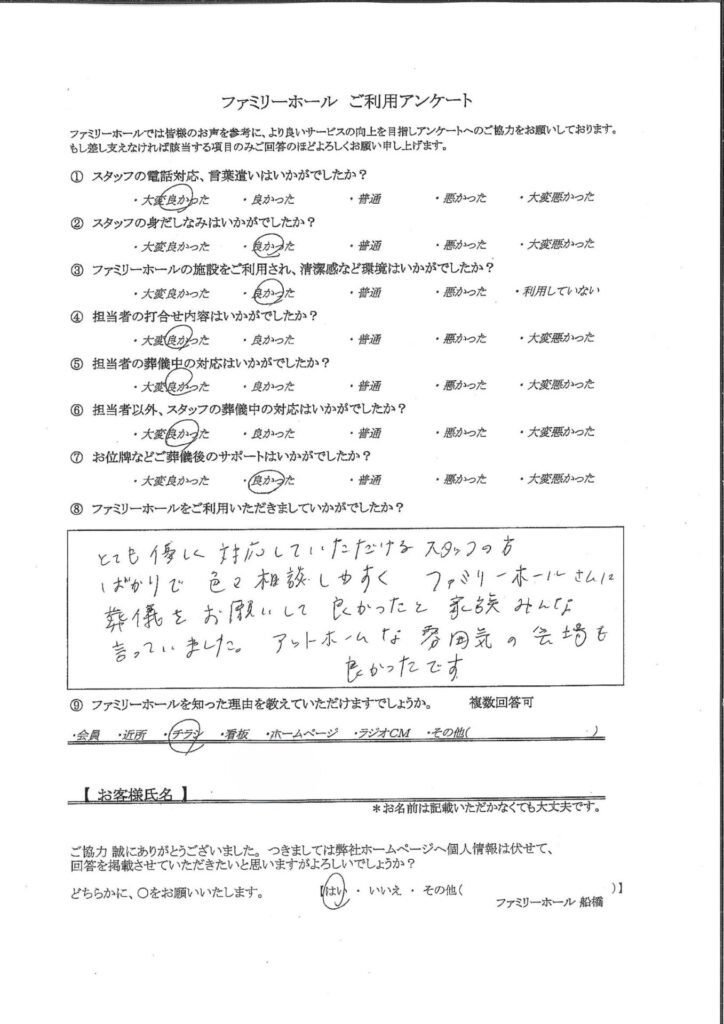 ファミリーホール ご利用アンケート
ファミリーホールでは皆様のお声を参考に、より良いサービスの向上を目指しアンケートへのご協力をお願いしております。
もし差し支えなければ該当する項目のみご回答のほどよろしくお願い申し上げます。
① スタッフの電話対応、言葉遣いはいかがでしたか？
・大変良かった ・良かった ・普通 ・悪かった ・大変悪かった
② スタッフの身だしなみはいかがでしたか？
・大変良かった ・良かった ・普通 ・悪かった ・大変悪かった
③ ファミリーホールの施設をご利用され、清潔感など環境はいかがでしたか？
・大変良かった ・良かった ・普通 ・悪かった ・利用していない
④ 担当者の打合せ内容はいかがでしたか？
・大変良かった ・良かった ・普通 ・悪かった ・大変悪かった
⑤ 担当者の葬儀中の対応はいかがでしたか？
・大変良かった ・良かった ・普通 ・悪かった ・大変悪かった
⑥ 担当者以外、スタッフの葬儀中の対応はいかがでしたか？
・大変良かった ・良かった ・普通 ・悪かった ・大変悪かった
⑦ お位牌などご葬儀後のサポートはいかがでしたか？
・大変良かった ・良かった ・普通 ・悪かった ・大変悪かった
⑧ ファミリーホールをご利用いただきましていかがでしたか？
とても優しく対応していただけるスタッフの方
ばかりで色々相談しやすく ファミリーホールさんに
葬儀をお願いして良かったと家族みんな
言っていました。アットホームな雰囲気の会場も
良かったです
⑨ ファミリーホールを知った理由を教えていただけますでしょうか。 複数回答可
・会員 ・近所 ・チラシ ・看板 ・ホームページ ・ラジオCM ・その他( )
【 お客様氏名 】
＊お名前は記載いただかなくても大丈夫です。
ご協力 誠にありがとうございました。つきましては弊社ホームページへ個人情報は伏せて、
回答を掲載させていただきたいと思いますがよろしいでしょうか？
どちらかに、〇をお願いいたします。 【はい ・ いいえ ・ その他( )】
ファミリーホール 船橋